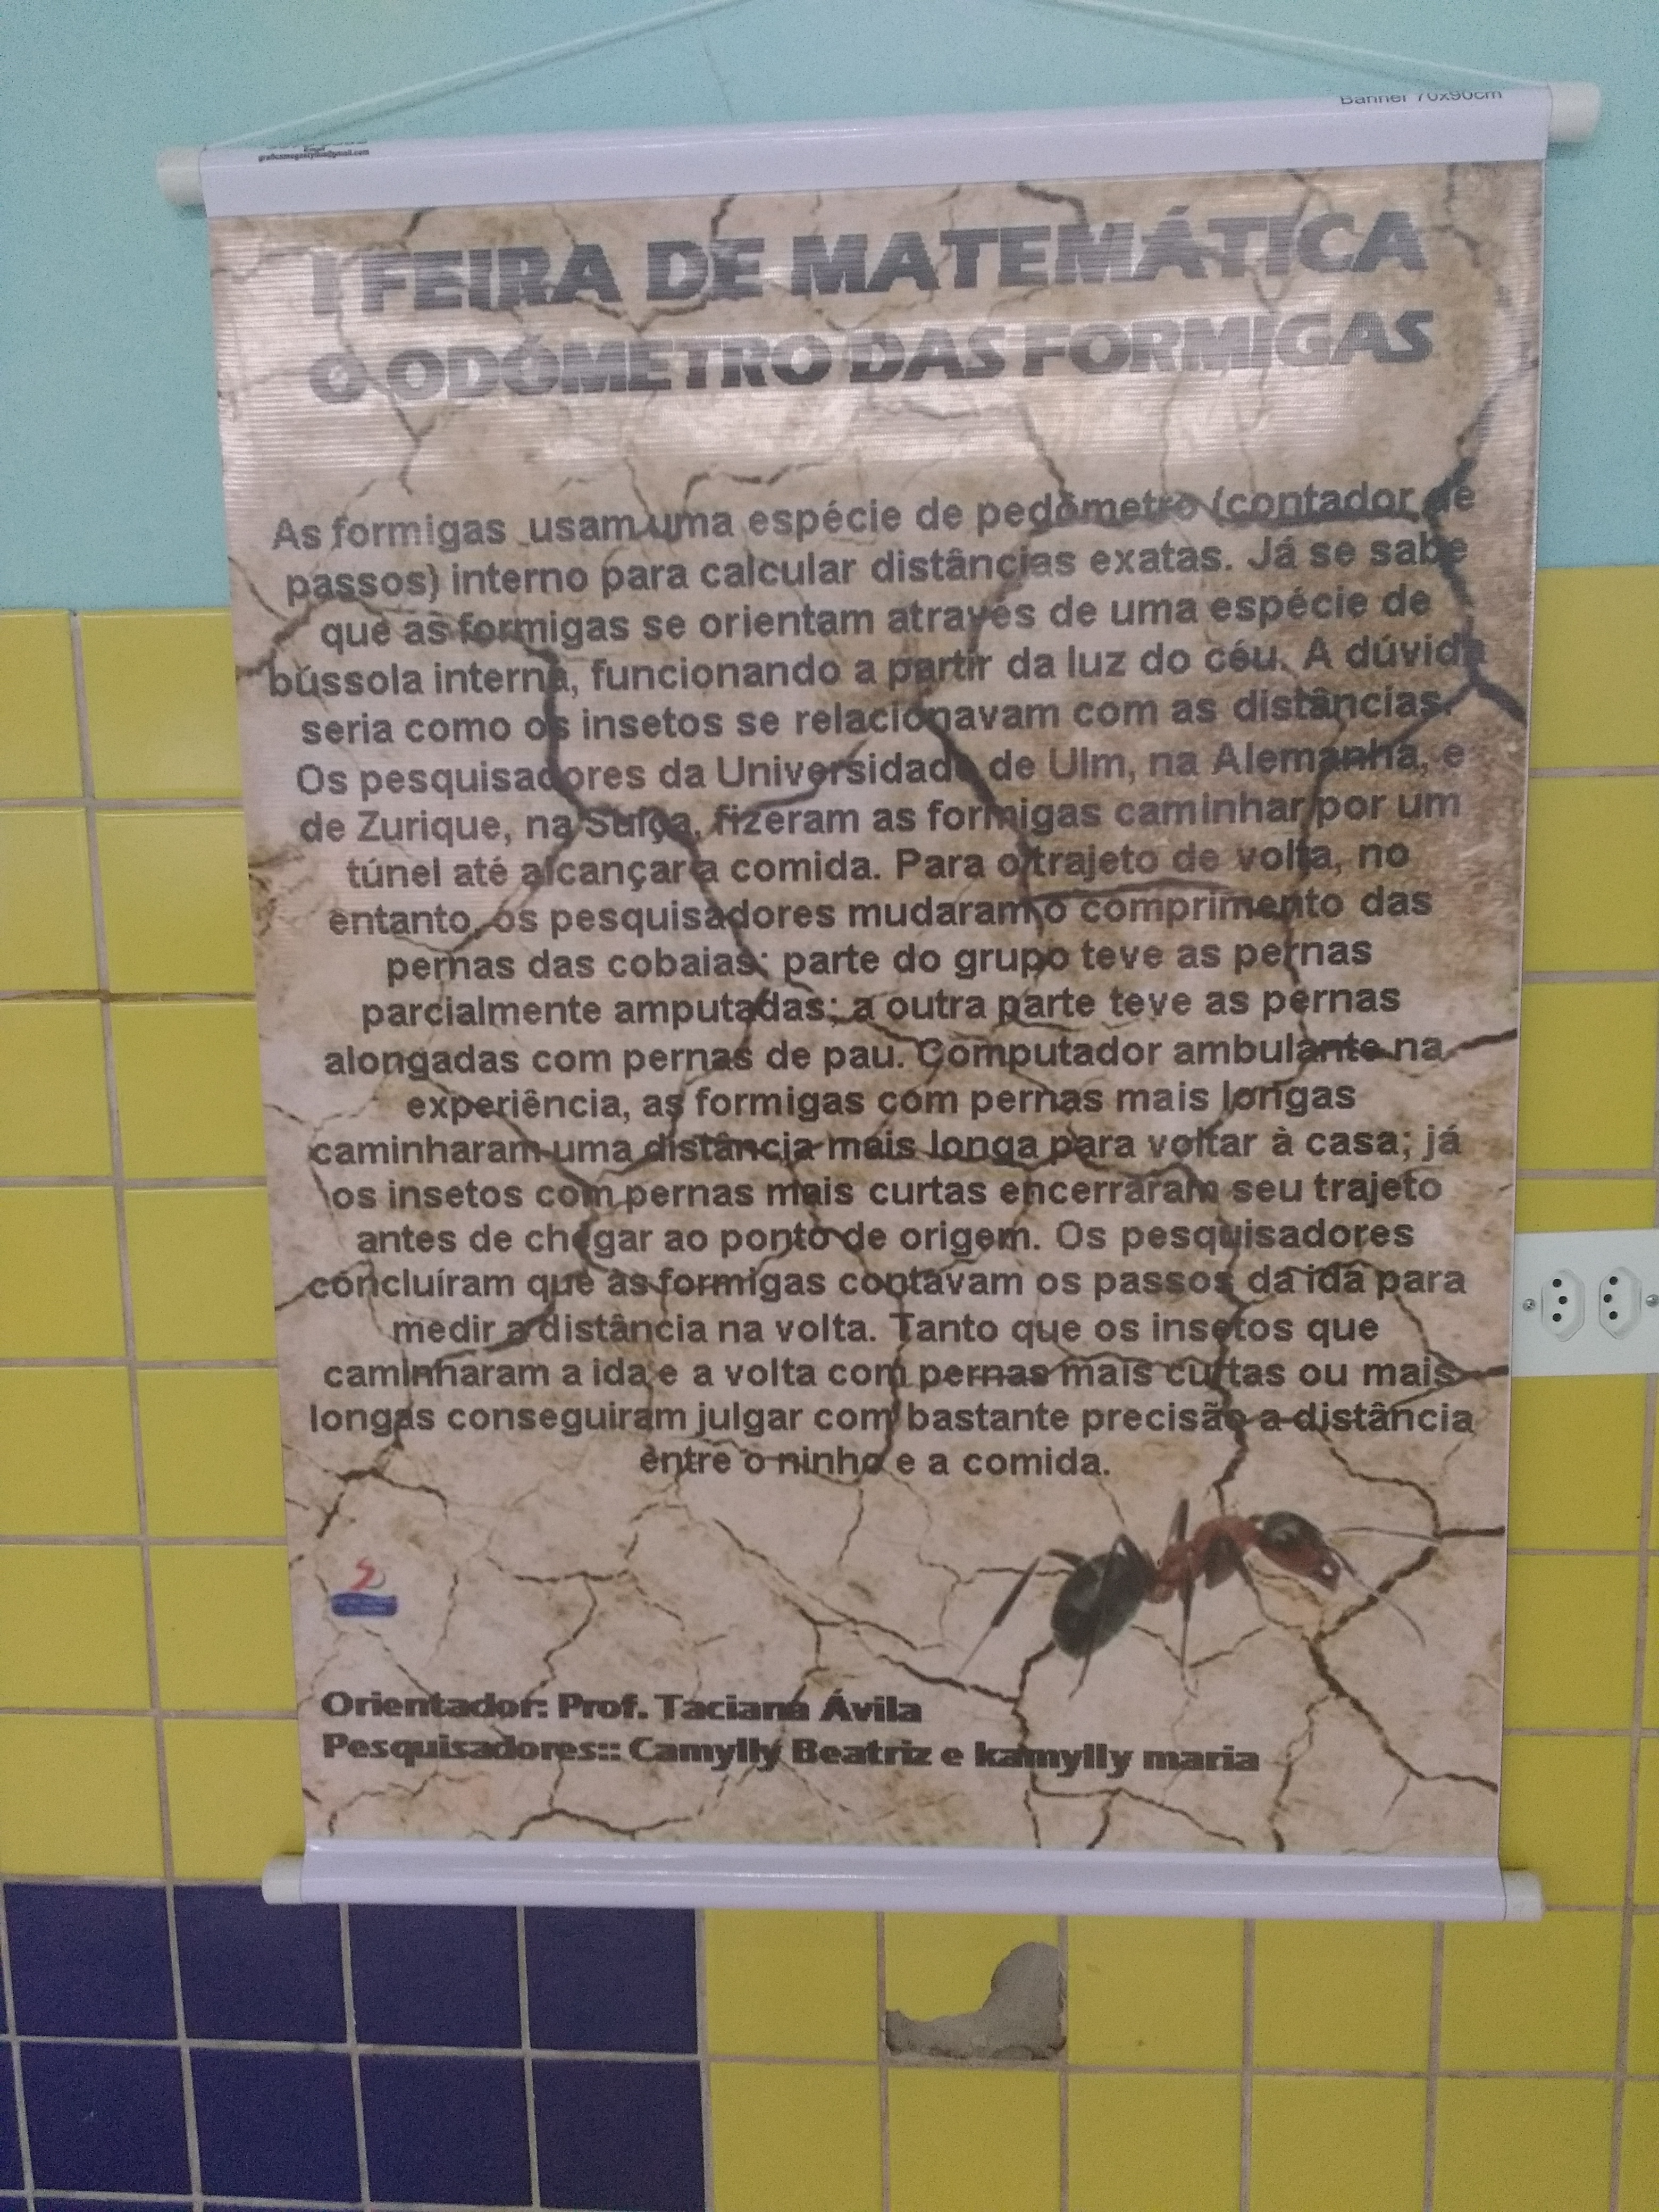 Banner 70x90cm
I FEIRA DE MATEMÁTICA
O ODÓMETRO DAS FORMIGAS
As formigas usam uma espécie de pedômetro (contador de
passos) interno para calcular distâncias exatas. Já se sabe
que as formigas se orientam através de uma espécie de
bússola interna, funcionando a partir da luz do céu. A dúvida
seria como os insetos se relacionavam com as distâncias.
Os pesquisadores da Universidade de Ulm, na Alemanha, e
de Zurique, na Suíça, fizeram as formigas caminhar por um
túnel até alcançar a comida. Para o trajeto de volta, no
entanto, os pesquisadores mudaram o comprimento das
pernas das cobaias: parte do grupo teve as pernas
parcialmente amputadas; a outra parte teve as pernas
alongadas com pernas de pau. Computador ambulante na
experiência, as formigas com pernas mais longas
caminharam uma distância mais longa para voltar à casa; já
os insetos com pernas mais curtas encerraram seu trajeto
antes de chegar ao ponto de origem. Os pesquisadores
concluíram que as formigas contavam os passos da ida para
medir a distância na volta. Tanto que os insetos que
caminharam a ida e a volta com pernas mais curtas ou mais
longas conseguiram julgar com bastante precisão a distância
entre o ninho e a comida.
Orientador: Prof. Taciana Ávila
Pesquisadores:: Camylly Beatriz e kamylly maria